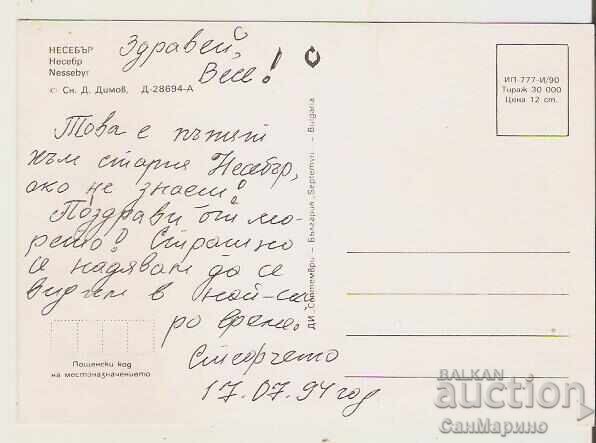 НЕСЕБЪР
Несебр
Nessebyr
© Сн. Д. Димов, Д-28694-А
Здравей,
Весе!
Това е пътят
към стария Несебър,
ако не знаеш!
Поздрави от мо-
рето! Страшно
се надявам да се
видим в най-ско
ро време.
17.07.94 год
Пощенски код
на местоназначението
ДИ „Септември" – България „Septemvri" – Bulgaria
ИП-777-И/90
Тираж 30 000
Цена 12 ст.
BALKAN
auction
СанМарино